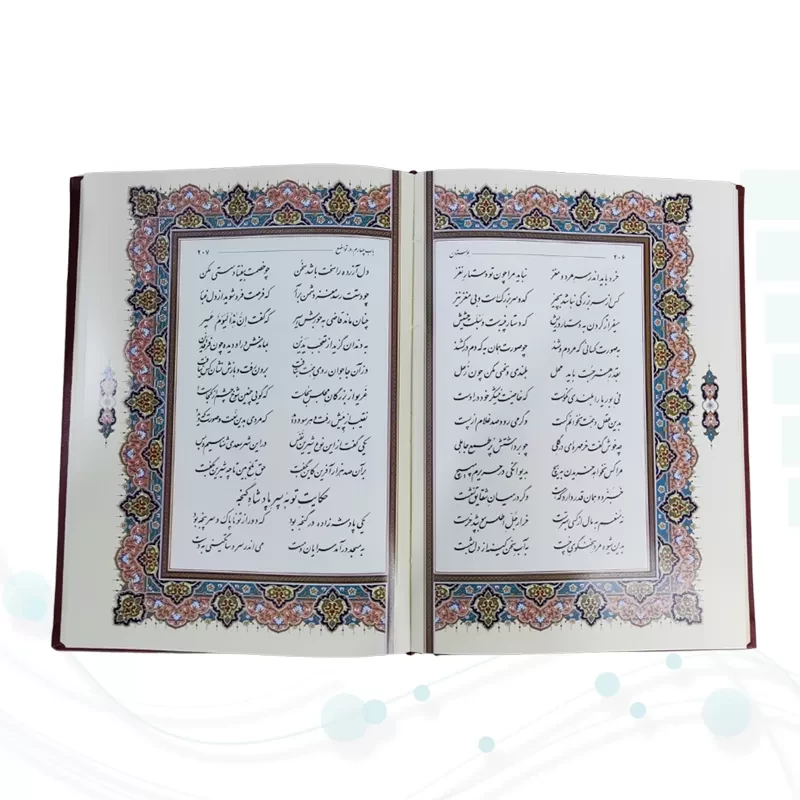 ۲۰۶ بوستان
خرد باید اندر سر مرد و مغز نباید مرا چون تو دستار نغز
کس از سر بزرگی نباشد به چیز کدو سر بزرگ است و بی مغز نیز
میفراز گردن به دستار و ریش که دستار پنبه‌ست و سبلت حشیش
به صورت کسانی که مردم وشند چو صورت همان به که دم درکشند
بقدر هنر جست باید محل بلندی و نحسی مکن چون زحل
نی بوریا را بلندی نکوست که خاصیت نیشکر خود در اوست
بدین عقل و همت نخوانم کست وگر می رود صد غلام از پست
چه خوش گفت خرمهره‌ای در گلی چو برداشتش پر طمع جاهلی
مرا کس نخواهد خریدن به هیچ به دیوانگی در حریرم مپیچ
خبزدو همان قدر دارد که هست وگر در میان شقایق نشست
نه منعم به مال از کسی بهتر است خر ار جل اطلس بپوشد خر است
بدین شیوه مرد سخنگوی چست به آب سخن کینه از دل بشست
باب چهارم در تواضع ۲۰۷
دل آزرده را سخت باشد سخن چو خصمت بیفتاد سستی مکن
چو دستت رسد مغز دشمن برآر که فرصت فرو شوید از دل غبار
چنان ماند قاضی به جورش اسیر که گفت إنّ هذا لیومٌ عسیر
به دندان گزید از تعجب یدین بماندش در او دیده چون فرقدین
وز آن جا جوان روی همت بتافت برون رفت و بازش نشان کس نیافت
غریو از بزرگان مجلس بخاست که گویی چنین شوخ چشم از کجاست
نقیب از پیش رفت و هر سو دوید که مردی بدین نعت و صورت که دید
یکی گفت از این نوع شیرین نفس در این شهر سعدی شناسیم و بس
بر آن صد هزار آفرین کاین بگفت حق تلخ بین تا چه شیرین بگفت
حکایت توبه پسر پادشاه گنجه
یکی پادشه زاده در گنجه بود که دور از تو ناپاک و سر پنجه بود
به مسجد درآمد سرایان و مست می اندر سر و ساتگینی به دست